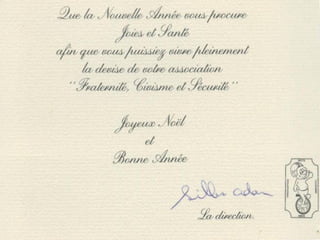 Que la Nouvelle Année vous procure
Joies et Santé
afin que vous puissiez vivre pleinement
la devise de votre association
"Fraternité, Civisme et Sécurité"
Joyeux Noël
et
Bonne Année
La direction.